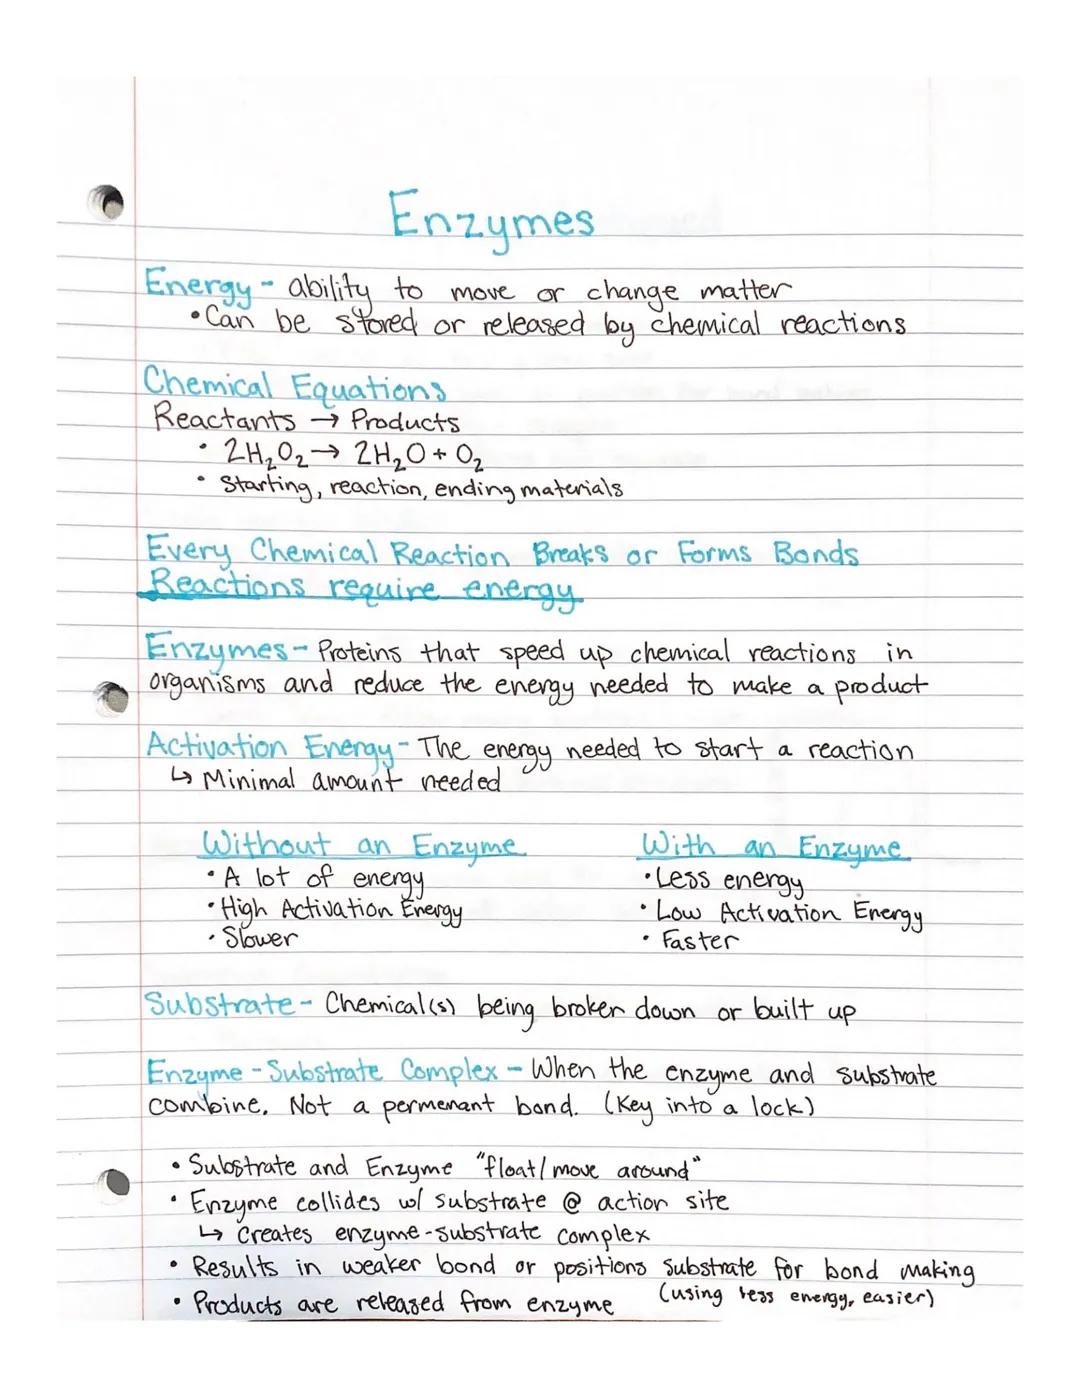 Enzymes
Energy - ability to move or change matter
• Can be stored or released by chemical reactions
Chemical Equations
Reactants → Products
• 2H₂O₂ → 2H₂O + O₂
• Starting, reaction, ending materials
Every Chemical Reaction Breaks or Forms Bonds
Reactions require energy
Enzymes - Proteins that speed up chemical reactions in
organisms and reduce the energy needed to make a product
Activation Energy - The energy needed to start a reaction
↳ Minimal amount needed
Without an Enzyme
• A lot of energy
• High Activation Energy
• Slower
With an Enzyme
• Less energy
• Low Activation Energy
• Faster
Substrate - Chemical(s) being broken down or built up
Enzyme - Substrate Complex - When the enzyme and substrate
combine. Not a permenant bond. (Key into a lock)
• Substrate and Enzyme "float/move around"
• Enzyme collides w/ substrate @ action site
↳ Creates enzyme-substrate complex
• Results in weaker bond or positions substrate for bond making
(using less energy, easier)
• Products are released from enzyme